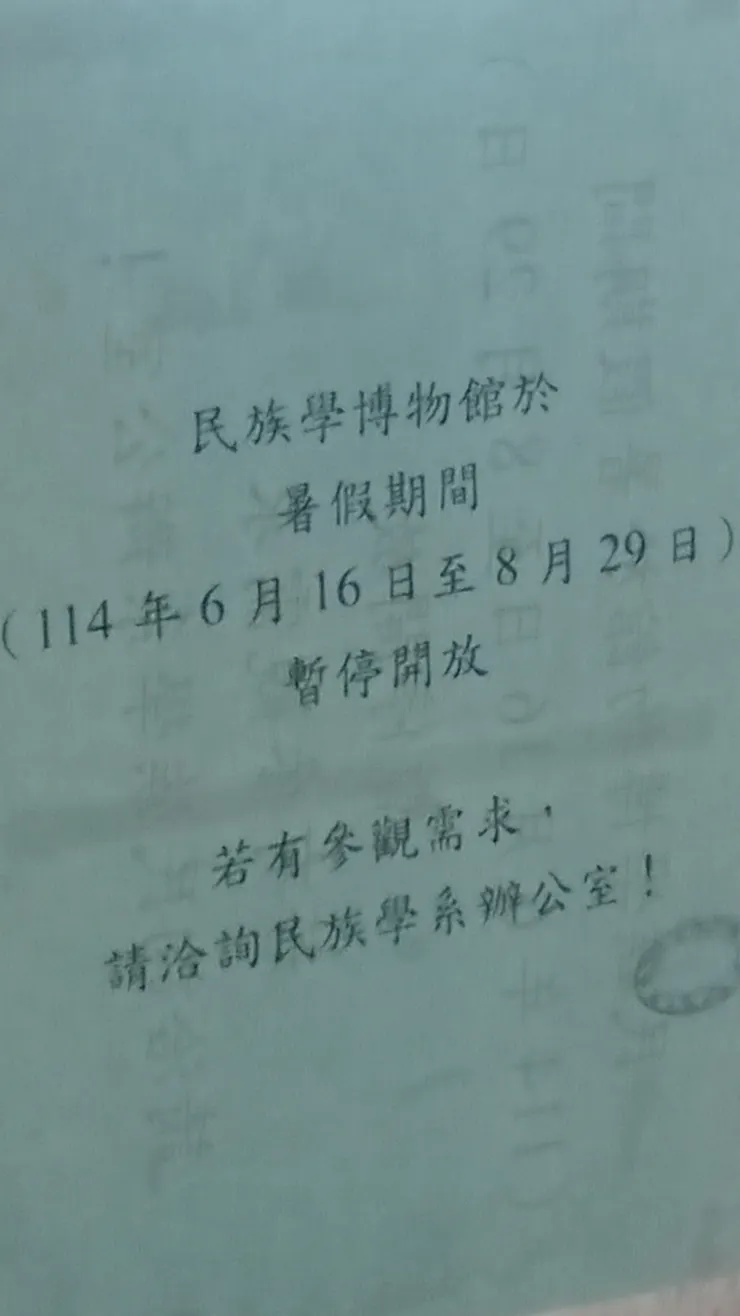 民族學博物館於
暑假期間
（114 年 6 月 16 日至 8 月 29 日）
暫停開放
若有參觀需求，
請洽詢民族學系辦公室！